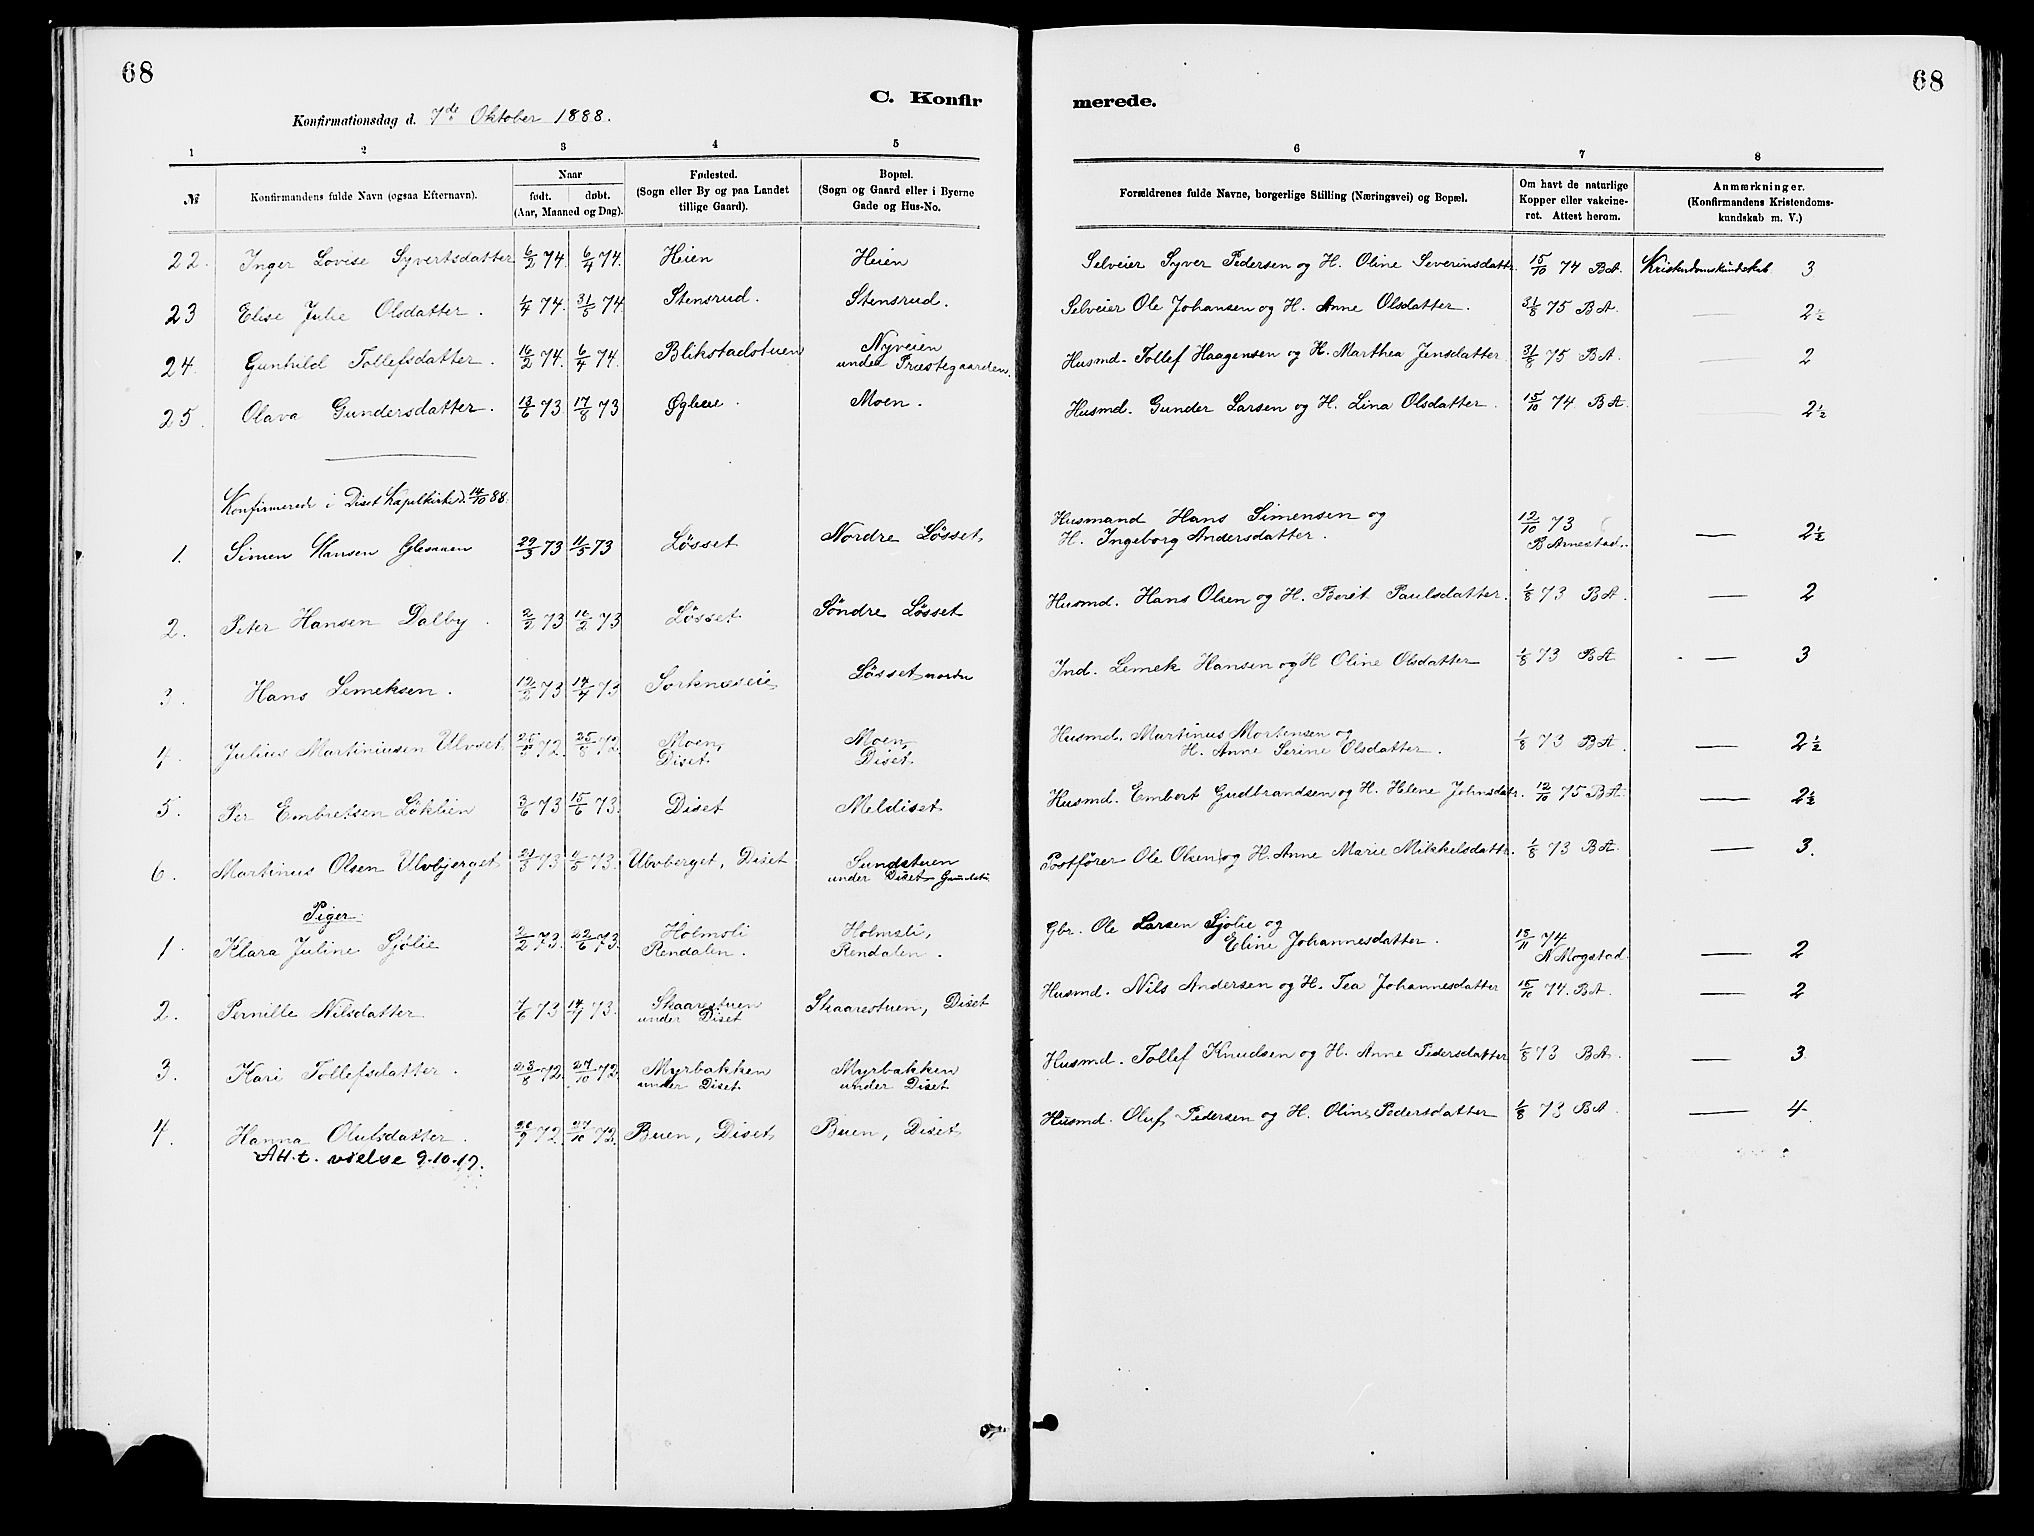 68
68
C. Konfir
merede.
Konfirmationsdag d. 7de Oktober 1888.
1 2 3 4 5 6 7 8
№ Konfirmandens fulde Navn (ogsaa Efternavn). Naar født. døbt. (Aar, Maaned og Dag). Fødested. (Sogn eller By og paa Landet tillige Gaard). Bopæl. (Sogn og Gaard eller i Byerne Gade og Hus-No. Forældrenes fulde Navne, borgerlige Stilling (Næringsvei) og Bopæl. Om havt de naturlige Kopper eller vakcineret. Attest herom. Anmærkninger. (Konfirmandens Kristendomskundskab m. V.)
22. Inger Lovise Syvertsdatter 6/2 74. 6/4 74. Heien Heien Selveier Syver Pedersen og H. Oline Severinsdatt. 15/10 74 BA. Kristendomskundskab 3
23 Elise Julie Olsdatter. 1/4 74. 31/5 74. Stensrud. Stensrud. Selveier Ole Johansen og H. Anne Olsdatter. 31/8 75 BA. — 2½
24. Gunhild Tollefsdatter. 16/2 74. 6/4 74. Blikstadstuen Nyveien under Præstegaarden. Husmd. Tollef Haagensen og H. Marthea Jensdatter 31/8 75 BA. — 2
25. Olava Gundersdatter. 13/6 73. 17/8 73 Øgleie. Moen. Husmd. Gunder Larsen og H. Lina Olsdatter. 15/10 74. BA. — 2½
Konfirmerede i Diset Kapelkirke d. 14/10 88.
1. Simen Hansen Glesaaen 29/3 73 11/5 73 Løsset Nordre Løsset. Husmand Hans Simensen og H. Ingeborg Andersdatter. 12/10 73 B Arnestad. — 2½
2. Peter Hansen Dalby. 2/2 73 16/2 73 Løsset Søndre Løsset Husmd. Hans Olsen og H. Berit Paulsdatter. 1/8 73 BA. — 2
3. Hans Lemeksen. 12/2 73 14/4 73 Sorknæseie Løsset nordre Ind. Lemek Hansen og H Oline Olsdatter 1/8 73 BA — 3
4. Julius Martiniusen Ulvset. 25/5 72. 25/8 72. Moen, Diset. Moen, Diset. Husmd. Martinus Mortensen og H. Anne Serine Olsdatter. 1/8 73 BA. — 2½
5. Per Embretsen Løklien 3/6 73 15/6 73. Diset Meldiset Husmd. Embert Gudbrandsen og H. Helene Johnsdatr. 12/10 75 BA. — 2½
6. Martinus Olsen Ulvbjerget 21/3 73 4/5 73. Ulvberget, Diset Sundstuen under Diset Postfører Ole Olsen og H. Anne Marie Mikkelsdattr. 1/8 73 BA. — 3.
Piger:
1. Klara Juline Sjølie 2/2 73. 22/6 73. Holmsli Rendalen. Holmsli, Rendalen. Gbr. Ole Larsen Sjølie og Eline Johannesdatter. 18/11 74 A Mogstad. — 2
2. Pernille Nilsdatter 7/6 73 14/9 73. Skaarestuen under Diset Skaarestuen, Diset Husmd. Nils Andersen og H. Tea Johannesdatter 15/10 74. BA. — 2
3. Kari Tollefsdatter. 23/8 72. 27/10 72. Myrbakken under Diset. Myrbakken under Diset Husmd. Tollef Knudsen og H. Anne Pedersdatter 1/8 73 BA. — 3
4. Hanna Olufsdatter. 20/9 72. 27/10 72. Buen, Diset. Buen, Diset. Husmd. Oluf Pedersen og H. Oline Pedersdatter 1/8 73 BA. — 4
Att. t. vielse 9.10.17.